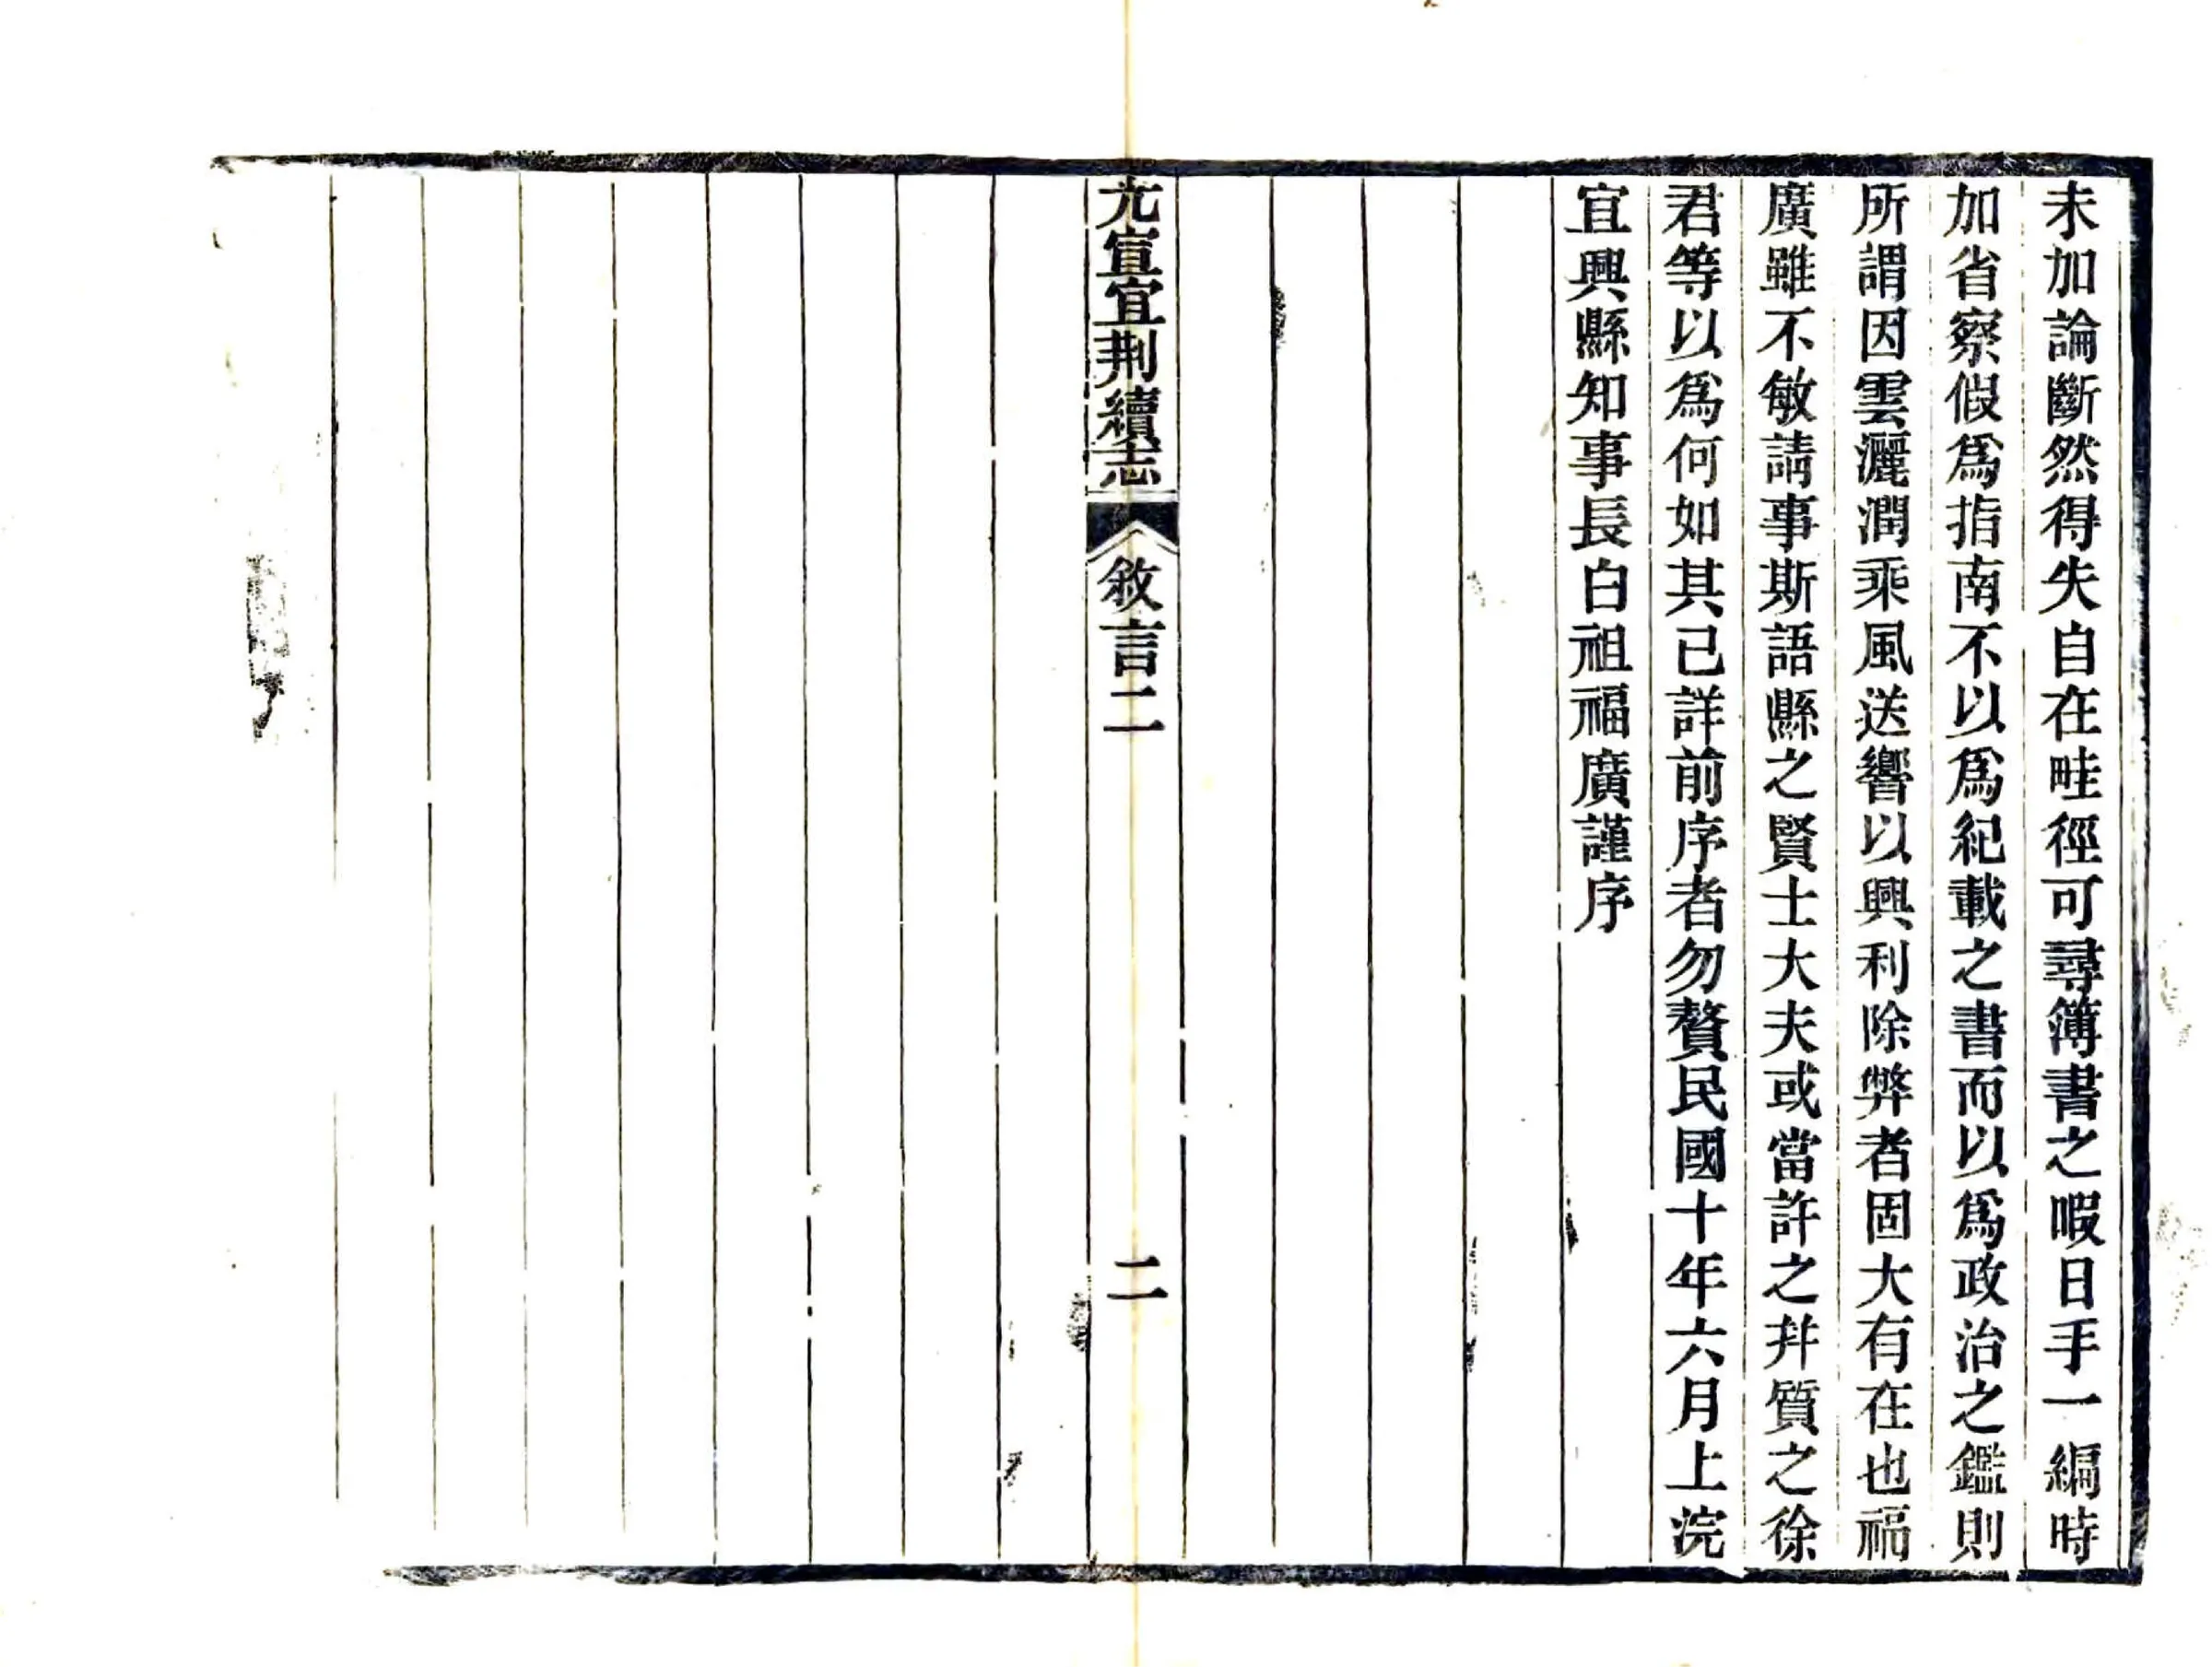 未加論斷然得失自在畦徑可尋簿書之暇日手一編時
加省察假爲指南不以爲紀載之書而以爲政治之鑑則
所謂因雲灑潤乘風送響以興利除弊者固大有在也福
廣雖不敏請事斯語縣之賢士大夫或當許之幷質之徐
君等以爲何如其已詳前序者勿贅民國十年六月上浣
宜興縣知事長白祖福廣謹序
光宣宜荆續志
敘言二
二